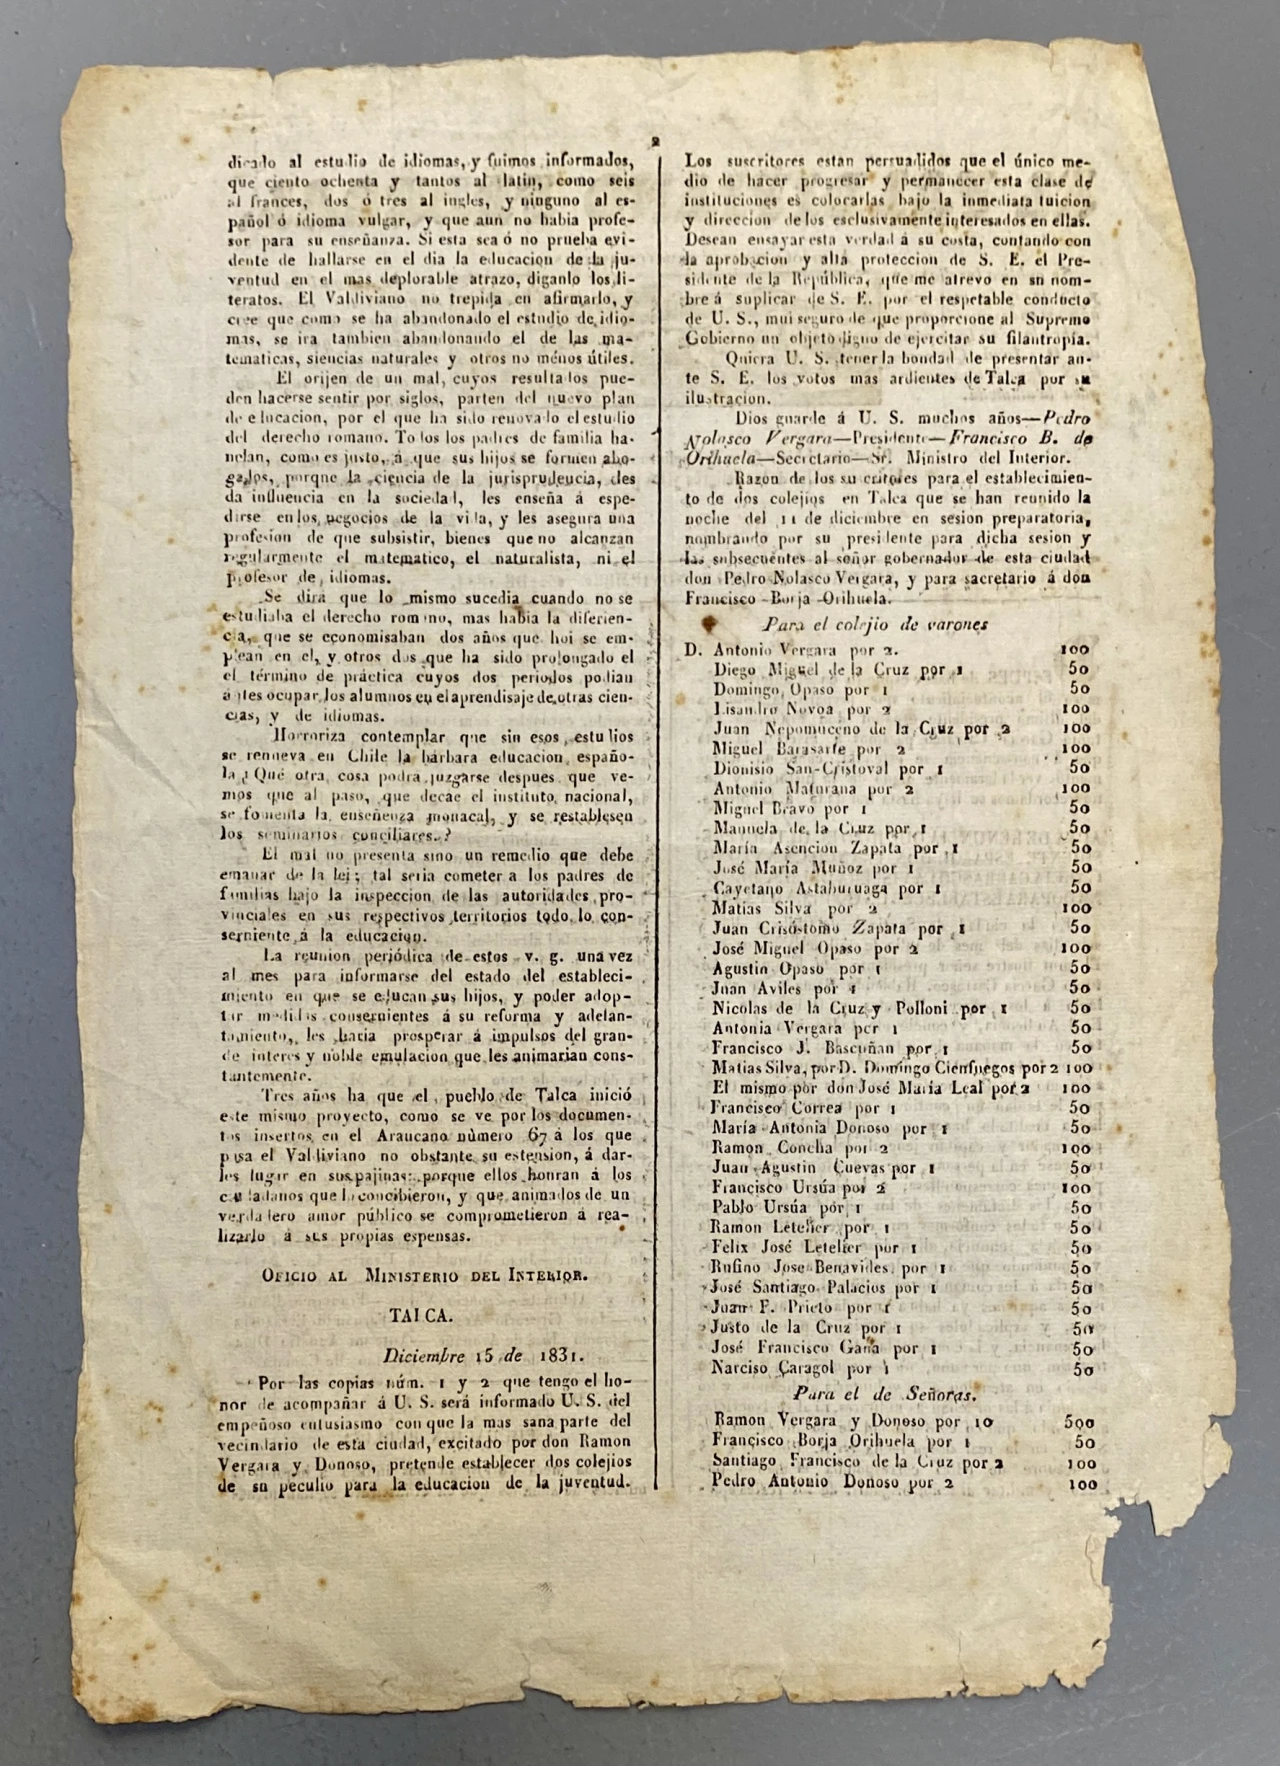 2
dicado al estudio de idiomas, y fuimos informados,
que ciento ochenta y tantos al latin, como seis
al frances, dos ó tres al ingles, y ninguno al es-
pañol ó idioma vulgar, y que aun no habia profe-
sor para su enseñanza. Si esta sea ó no prueba evi-
dente de hallarse en el dia la educacion de la ju-
ventud en el mas deplorable atrazo, diganlo los li-
teratos. El Valdiviano no trepida en afirmarlo, y
cree que como se ha abandonado el estudio de idio-
mas, se ira tambien abandonando el de las ma-
tematicas, siencias naturales y otros no ménos útiles.
El orijen de un mal, cuyos resultados pue-
den hacerse sentir por siglos, parten del nuevo plan
de educacion, por el que ha sido renovado el estudio
del derecho romano. Todos los padres de familia ha-
nelan, como es justo, á que sus hijos se formen abo-
gados, porque la ciencia de la jurisprudencia, les
da influencia en la sociedad, les enseña á espe-
dirse en los negocios de la vida, y les asegura una
profesion de que subsistir, bienes que no alcanzan
regularmente el matematico, el naturalista, ni el
profesor de idiomas.
Se dirá que lo mismo sucedia cuando no se
estudiaba el derecho romano, mas habia la diferien-
cia, que se economisaban dos años que hoi se em-
plean en el, y otros dos que ha sido prolongado el
el término de práctica cuyos dos periodos podian
ántes ocupar los alumnos en el aprendisaje de otras cien-
cias, y de idiomas.
Horroriza contemplar que sin esos estudios
se renueva en Chile la bárbara educacion españo-
la ¿Qué otra cosa podrá juzgarse despues que ve-
mos que al paso, que decae el instituto nacional,
se fomenta la enseñenza monacal, y se restablesen
los seminarios conciliares.?
El mal no presenta sino un remedio que debe
emanar de la lei; tal seria cometer a los padres de
familias bajo la inspeccion de las autoridades pro-
vinciales en sus respectivos territorios todo lo con-
serniente á la educacion.
La reunion periódica de estos v. g. una vez
al mes para informarse del estado del estableci-
miento en que se educan sus hijos, y poder adop-
tar medidas consernientes á su reforma y adelan-
tamiento, les haria prosperar á impulsos del gran-
de interes y noble emulacion que les animarian cons-
tantemente.
Tres años ha que el pueblo de Talca inició
este mismo proyecto, como se ve por los documen-
tos insertos en el Araucano número 67 á los que
pasa el Valdiviano no obstante su estension, á dar-
les lugar en sus pajinas: porque ellos honran á los
ciudadanos que lo concibieron, y que animados de un
verdadero amor público se comprometieron á rea-
lizarlo á sus propias espensas.
OFICIO AL MINISTERIO DEL INTERIOR.
TALCA.
Diciembre 15 de 1831.
Por las copias núm. 1 y 2 que tengo el ho-
nor de acompañar á U. S. será informado U. S. del
empeñoso entusiasmo con que la mas sana parte del
vecindario de esta ciudad, excitado por don Ramon
Vergara y Donoso, pretende establecer dos colejios
de su peculio para la educacion de la juventud.
Los suscritores estan persuadidos que el único me-
dio de hacer progresar y permanecer esta clase de
instituciones es colocarlas bajo la inmediata tuicion
y direccion de los esclusivamente interesados en ellas.
Desean ensayar esta verdad á su costa, contando con
la aprobacion y alta proteccion de S. E. el Pre-
sidente de la República, que me atrevo en sn nom-
bre á suplicar de S. E. por el respetable conducto
de U. S., mui seguro de que proporcione al Supremo
Gobierno un objeto digno de ejercitar su filantropía.
Quiera U. S. tener la bondad de presentar an-
te S. E. los votos mas ardientes de Talca por su
ilustracion.
Dios guarde á U. S. muchos años—Pedro
Nolasco Vergara—Presidente—Francisco B. de
Orihuela—Secretario—Sr. Ministro del Interior.
Razon de los suscritores para el establecimien-
to de dos colejios en Talca que se han reunido la
noche del 11 de diciembre en sesion preparatoria,
nombrando por su presidente para dicha sesion y
las subsecuentes al señor gobernador de esta ciudad
don Pedro Nolasco Vergara, y para sacretario á don
Francisco Borja Orihuela.
Para el colejio de varones
D. Antonio Vergara por 2. 100
Diego Miguel de la Cruz por 1 50
Domingo Opaso por 1 50
Lisandro Novoa por 2 100
Juan Nepomuceno de la Cruz por 2 100
Miguel Barasarte por 2 100
Dionisio San-Cristoval por 1 50
Antonio Maturana por 2 100
Miguel Bravo por 1 50
Manuela de la Cruz por 1 50
María Asencion Zapata por 1 50
José María Muñoz por 1 50
Cayetano Astaburuaga por 1 50
Matias Silva por 2 100
Juan Crisóstomo Zapata por 1 50
José Miguel Opaso por 2 100
Agustin Opaso por 1 50
Juan Aviles por 1 50
Nicolas de la Cruz y Polloni por 1 50
Antonia Vergara por 1 50
Francisco J. Bascuñan por 1 50
Matias Silva, por D. Domingo Cienfuegos por 2 100
El mismo por don José María Leal por 2 100
Francisco Correa por 1 50
María Antonia Donoso por 1 50
Ramon Concha por 2 100
Juan Agustin Cuevas por 1 50
Francisco Ursúa por 2 100
Pablo Ursúa por 1 50
Ramon Letelier por 1 50
Felix José Letelier por 1 50
Rufino Jose Benavides por 1 50
José Santiago Palacios por 1 50
Juan F. Prieto por 1 50
Justo de la Cruz por 1 50
José Francisco Gana por 1 50
Narciso Caragol por 1 50
Para el de Señoras.
Ramon Vergara y Donoso por 10 500
Francisco Borja Orihuela por 1 50
Santiago Francisco de la Cruz por 2 100
Pedro Antonio Donoso por 2 100